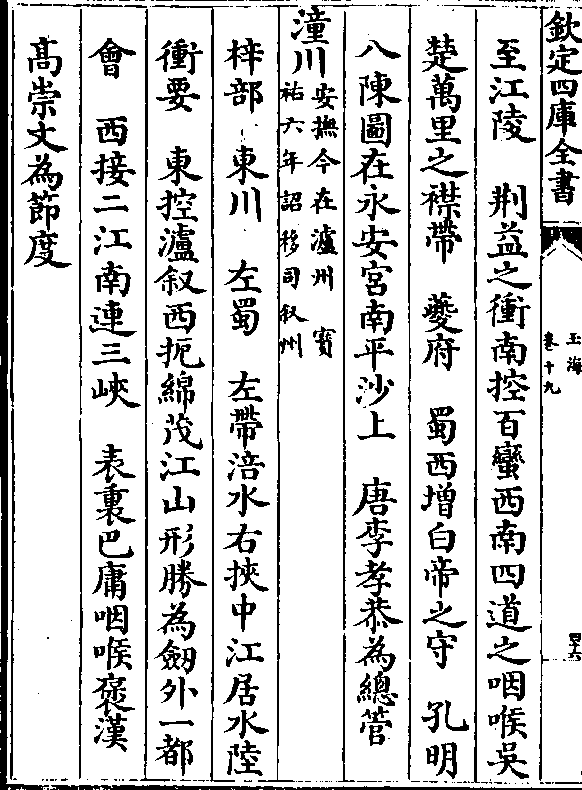 欽定四庫全書
玉海
卷十九
四十六
至江陵　荆益之衝南控百蠻西南四道之咽喉吳
楚萬里之襟帶　夔府　蜀西増白帝之守　孔明
八陳圖在永安宫南平沙上　唐李孝恭為總管
潼川安撫今在瀘州　寳
祐六年詔移司叙州
梓部　東川　左蜀　左帶涪水右挾中江居水陸
衝要　東控瀘叙西扼綿茂江山形勝為劒外一都
會　西接二江南連三峽　表裏巴庸咽喉褒漢
髙崇文為節度